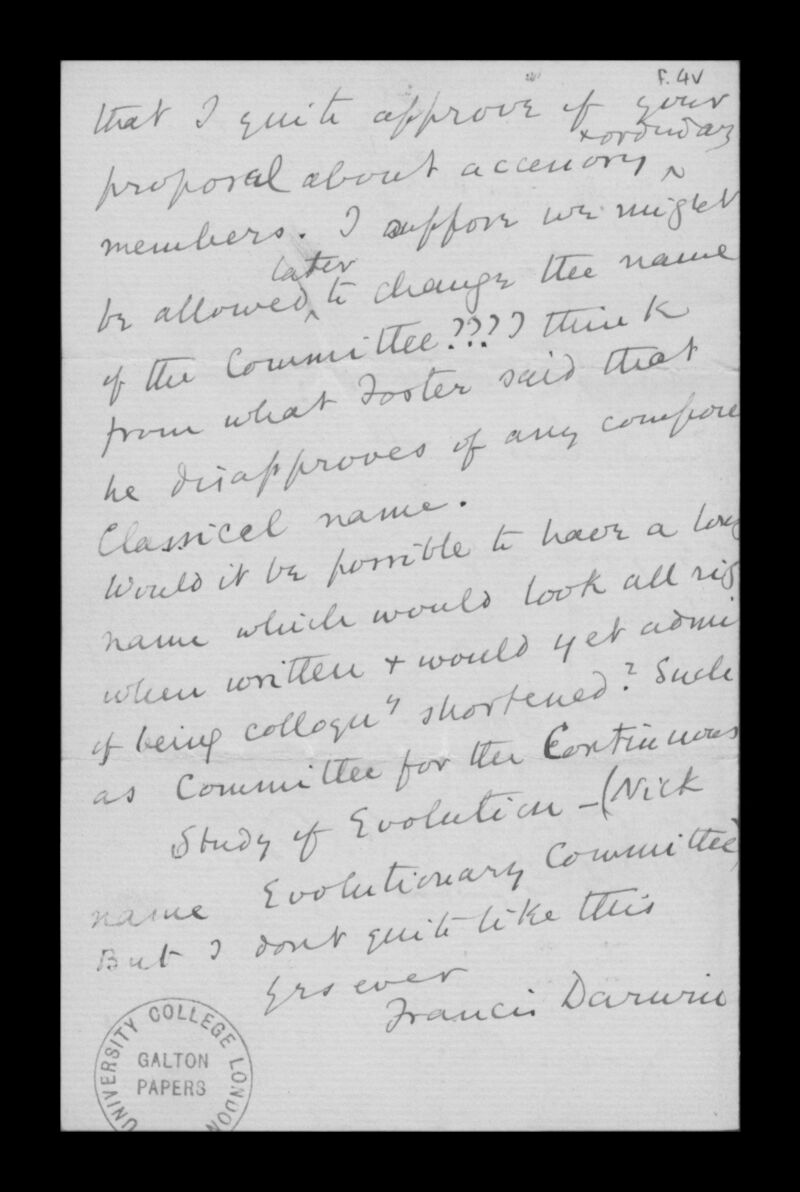 F. 4v
that I quite approve of your
+ ordinary
proposal about accessory ^
members. I suppose we might
later
be allowed ^ to change the name
of the Committee ??? I think
from what Foster said that
he disapproves of any
Classical name.
Would it be possible to have a long
name which would look all rig
when written + would yet admi
of being colloqu^y shortened? Such
as Committee for the Continuous
Study of Evolution – (Nick
name Evolutionary Committee)
But I dont quite like this
yrs ever
Francis Darwin
UNIVERSITY COLLEGE LONDON
GALTON
PAPERS